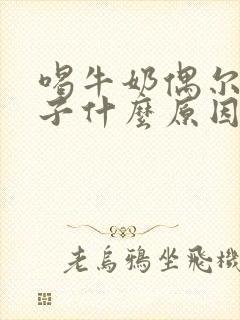 喝牛奶偶尔
子什麼原因
老烏鴉坐飛機